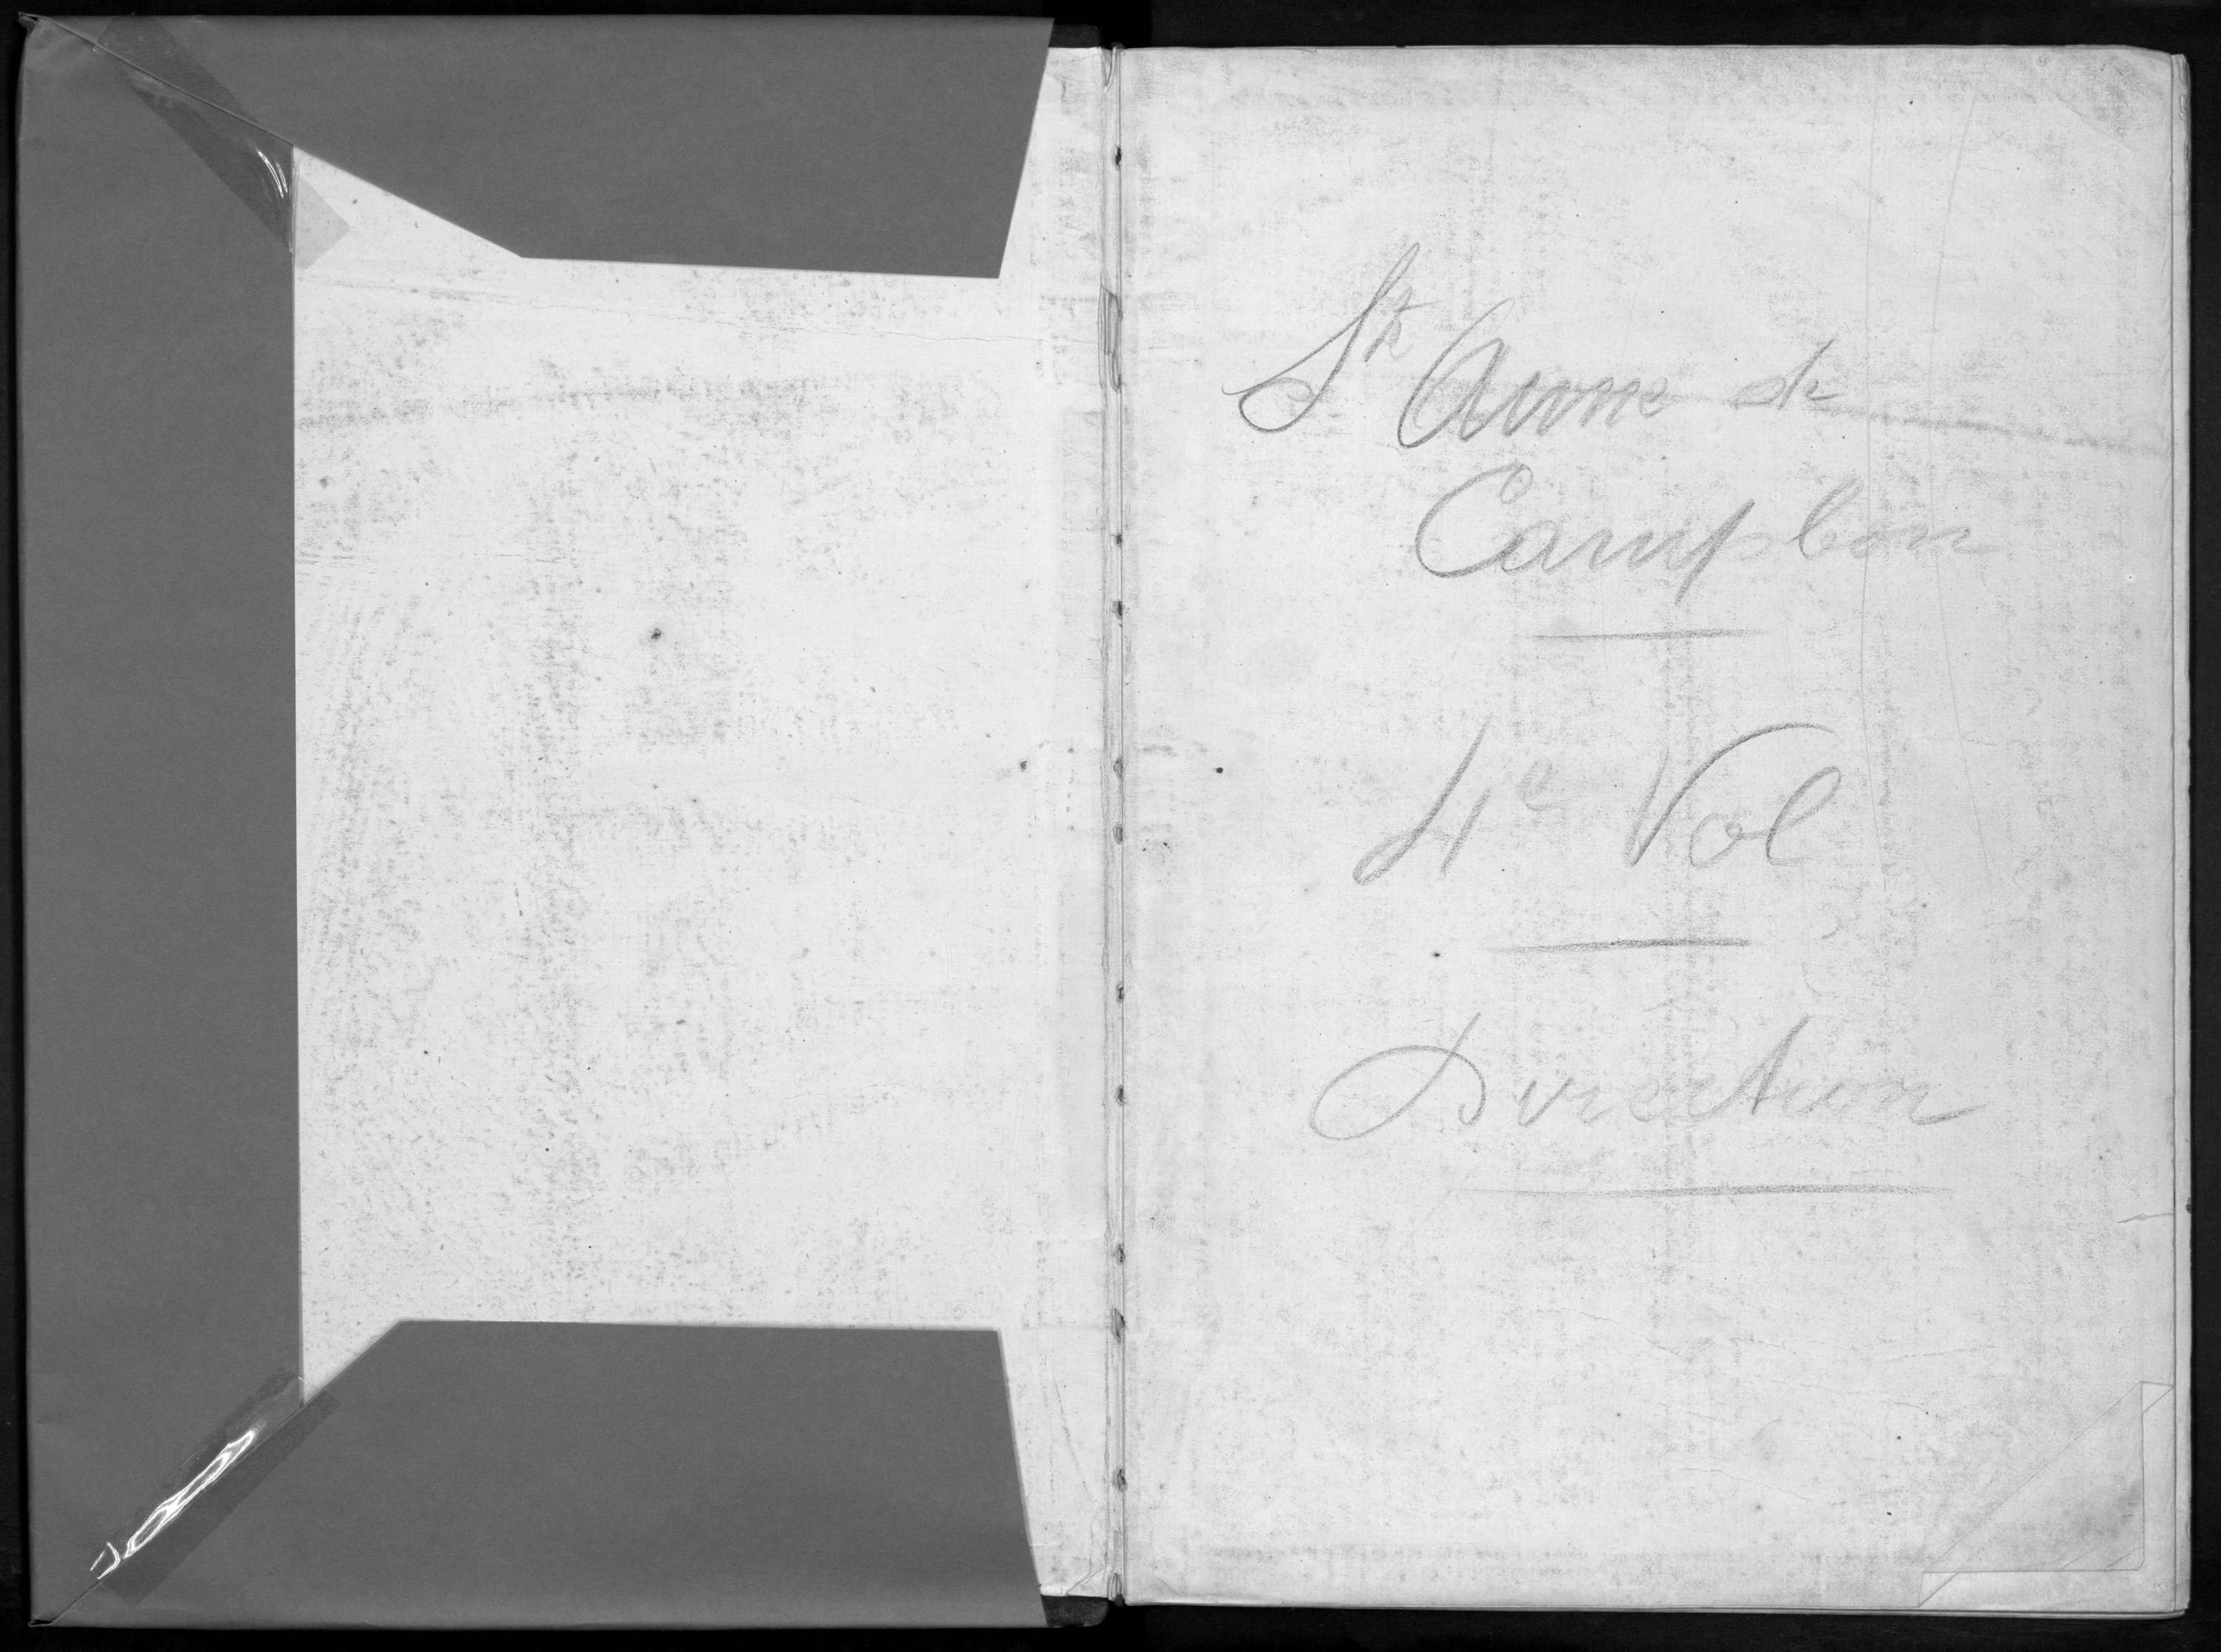 Ste Anne de
Campbon
4e Vol
Direction